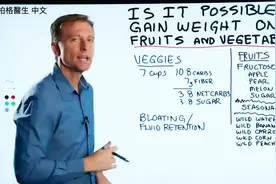 柏格醫生 中文
IS IT POSSIBLE
GAIN WEIGHT ON
FRUITS AND VEGETAB
VEGGIES
7 CUPS 10.8 CARBS
7g FIBER
3.8 NET CARBS
3.8 SUGAR
BLOATING/
FLUID RETENTION
FRUITS
FRUCTOSE
APPLE
PEAR
MELON
SUGAR
SEASONAL
WILD WATER
WILD BANAN
WILD CARRO
WILD CORN
WILD PEACH